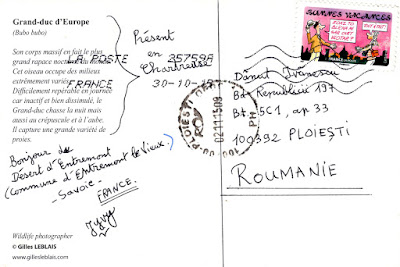 Grand-duc d'Europe
(Bubo bubo)
Son corps massif en fait le plus
grand rapace nocturne du monde.
Cet oiseau occupe des milieux
extrêmement variés.
Difficilement repérable en journée
car inactif et bien dissimulé, le
Grand-duc chasse la nuit mais
aussi au crépuscule et à l'aube.
Il capture une grande variété de
proies.
Présent
en
Chartreuse
LA POSTE 35759A
FRANCE 30-10-15
BONNES VACANCES
Dănuț Ivănescu
Bd. Republicii 197
Bl. 5C1, ap 33
100392 PLOIEȘTI
ROUMANIE
PLOIEȘTI
021115 09
Bonjour du
Désert d'Entremont
(Commune d'Entremont le Vieux.)
- Savoie -
FRANCE.
Wildlife photographer
© Gilles LEBLAIS
www.gillesleblais.com